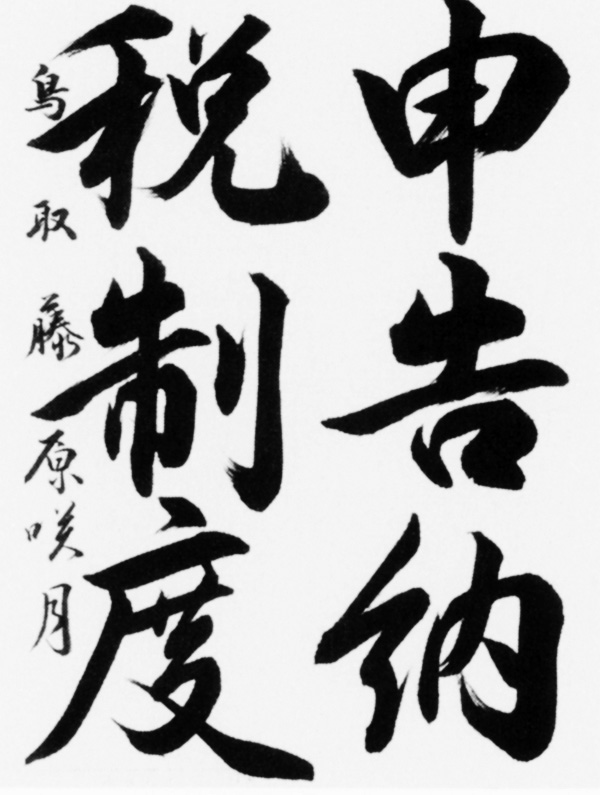 申告納
税制度
鳥取 藤原咲月